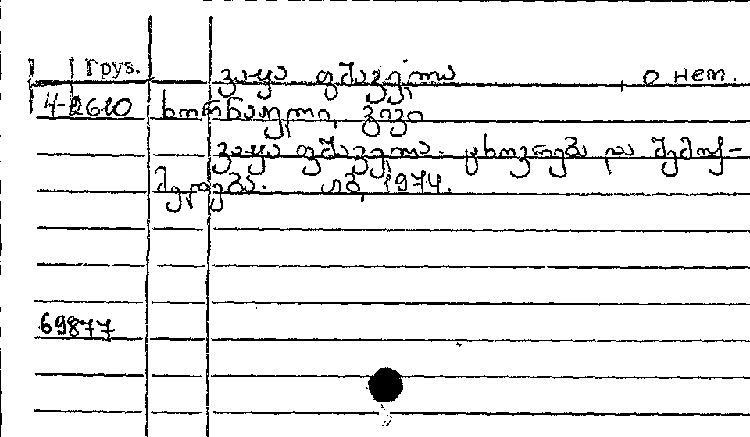 Груз. ვაჟა ფშაველა о нем.
4-2610 ხორნაული, გიგი
ვაჟა ფშაველა. ცხოვრება და შემოქ-
მედება. თბ, 1974.
69877